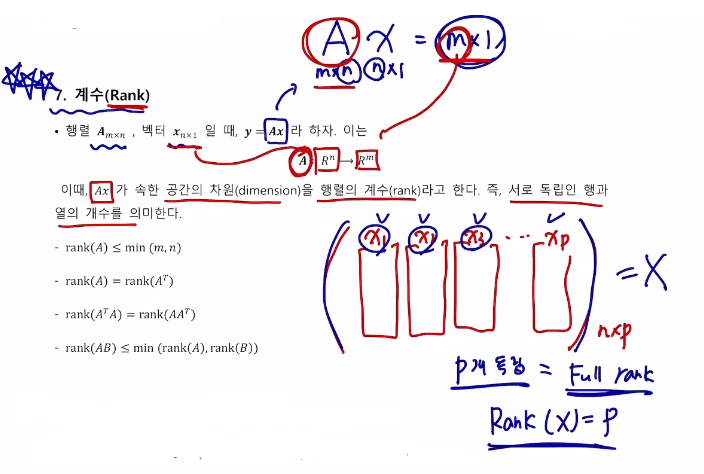 A x = m×1
m×n n×1
7. 계수(Rank)
• 행렬 A_{m×n} , 벡터 x_{n×1} 일 때, y = Ax 라 하자. 이는
A: R^n → R^m
이때, Ax 가 속한 공간의 차원(dimension)을 행렬의 계수(rank)라고 한다. 즉, 서로 독립인 행과
열의 개수를 의미한다.
- rank(A) ≤ min (m, n)
- rank(A) = rank(A^T)
- rank(A^T A) = rank(AA^T)
- rank(AB) ≤ min (rank(A), rank(B))
( x₁ x₃ ⋯ xp ) = X
n×p
p개 독립 = Full rank
Rank (X) = p